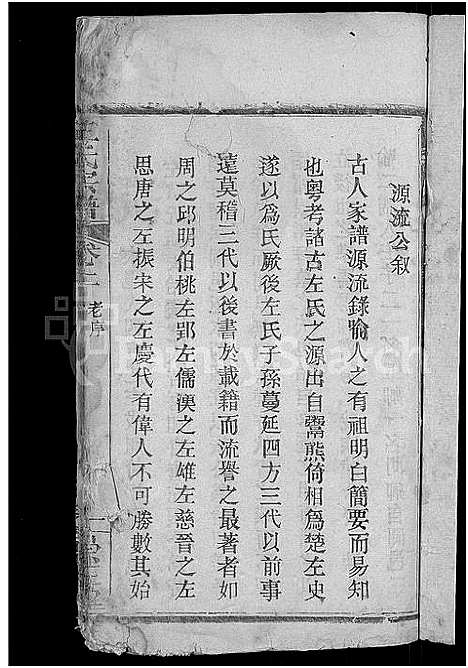 源流公叙
古人家譜源流錄喻人之有祖明白簡要而易知
也粵考諸古左氏之源出自鬻熊倚相爲楚左史
遂以爲氏厥後左氏子孫蔓延四方三代以前事
遠莫稽三代以後書於載籍而流譽之最著者如
周之邱明伯桃左郢左儒漢之左雄左慈晉之左
思唐之左振宋之左慶代有偉人不可勝數其始
左氏宗譜
卷之
老序
一
FamilySearch